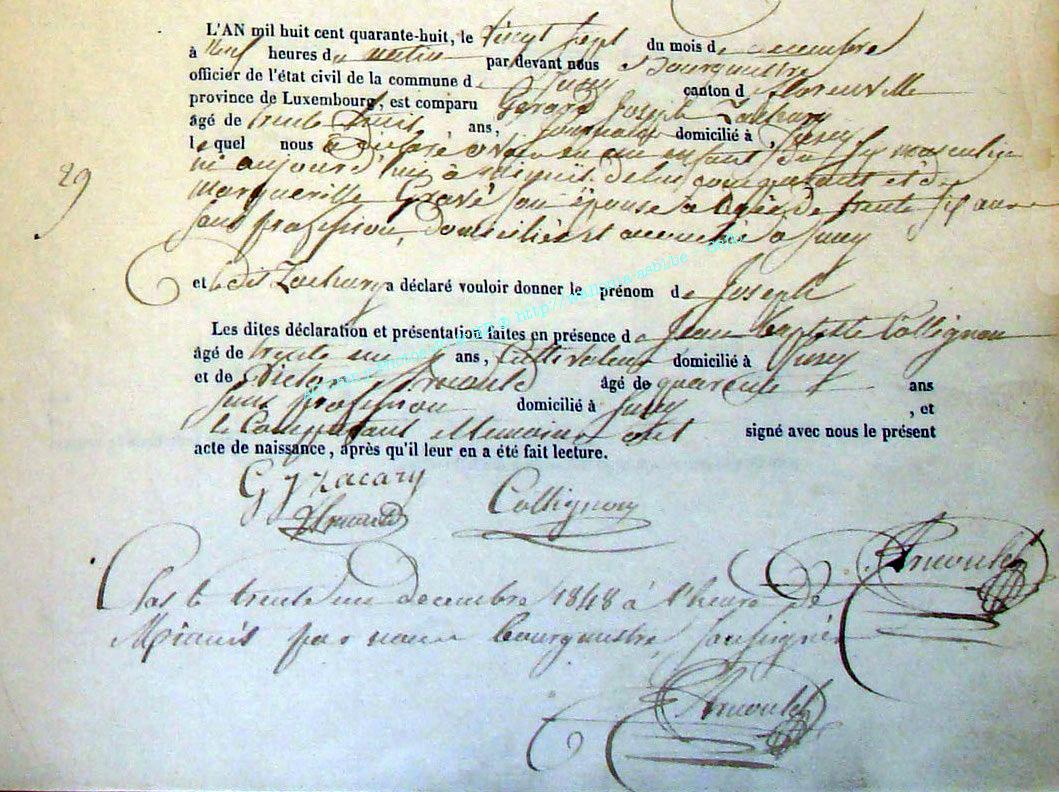 L'AN mil huit cent quarante-huit, le vingt sept du mois de décembre
à neuf heures du matin par devant nous Bourgmestre
officier de l'état civil de la commune de Suxy canton de florenville
province de Luxembourg, est comparu Gerard Joseph Zachary
âgé de trente huit, ans, journalier domicilié à, Suxy
lequel nous a déclaré avoir eu un enfant du sexe masculin
né aujourd'hui à de lui comparant et de
29
margueritte son épouse agée de trente six ans
sans profession, domiciliés et accouchée à Suxy
et le dit Zachary a déclaré vouloir donner le prénom de Joseph
Les dites déclaration et présentation faites en présence de Jean Baptiste Collignon
âgé de trente un ans, Cultivateur domicilié à Suxy
et de Victor Arnould âgé de quarente ans
sans profession domicilié à Suxy, et
le Comparant et temoins ont signé avec nous le présent
acte de naissance, après qu'il leur en a été fait lecture.
G J Zacary
Collignon
Arnould
Clos le trente un decembre 1848 à l'heure de
Minuit par nous bourgmestre, soussigné
Arnould